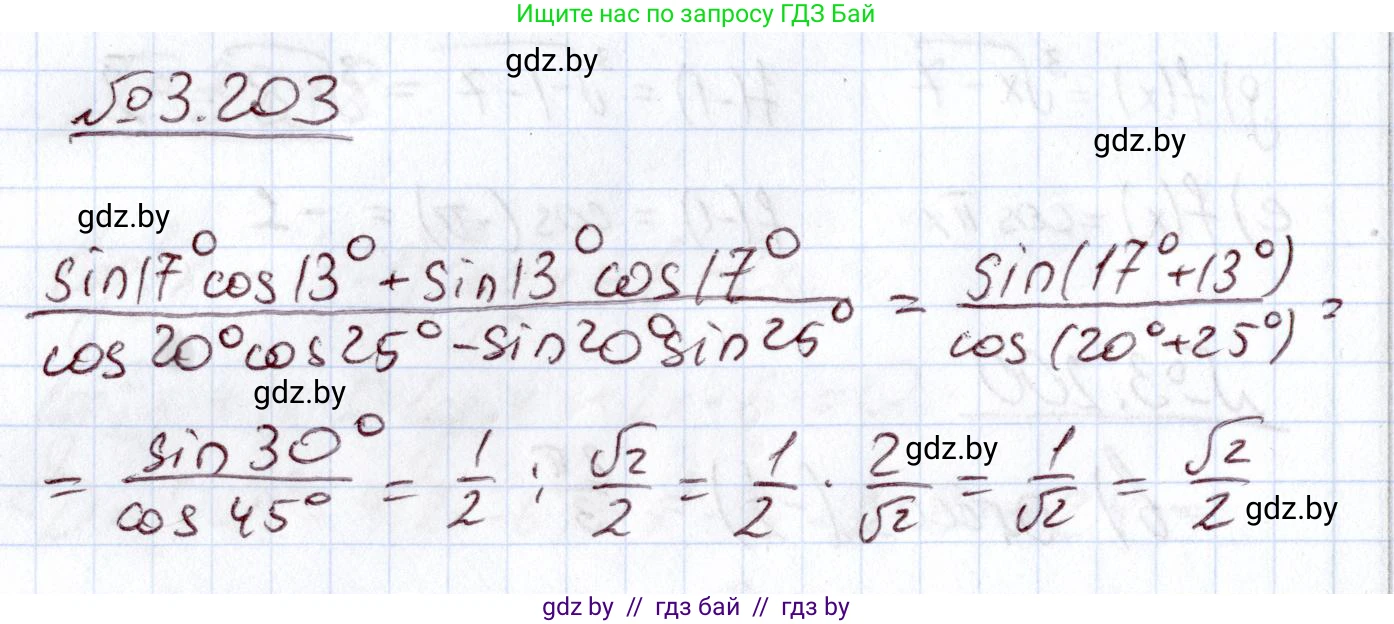 Ищите нас по запросу ГДЗ Бай
gdz.by
№3.203
gdz.by
gdz.by
sin17°cos13°+sin13°cos17° / cos20°cos25°-sin20°sin25° = sin(17°+13°) / cos(20°+25°) =
gdz.by
= sin30° / cos45° = 1/2 : √2/2 = 1/2 · 2/√2 = 1/√2 = √2/2
gdz.by
gdz.by
gdz by // гдз бай // гдз by